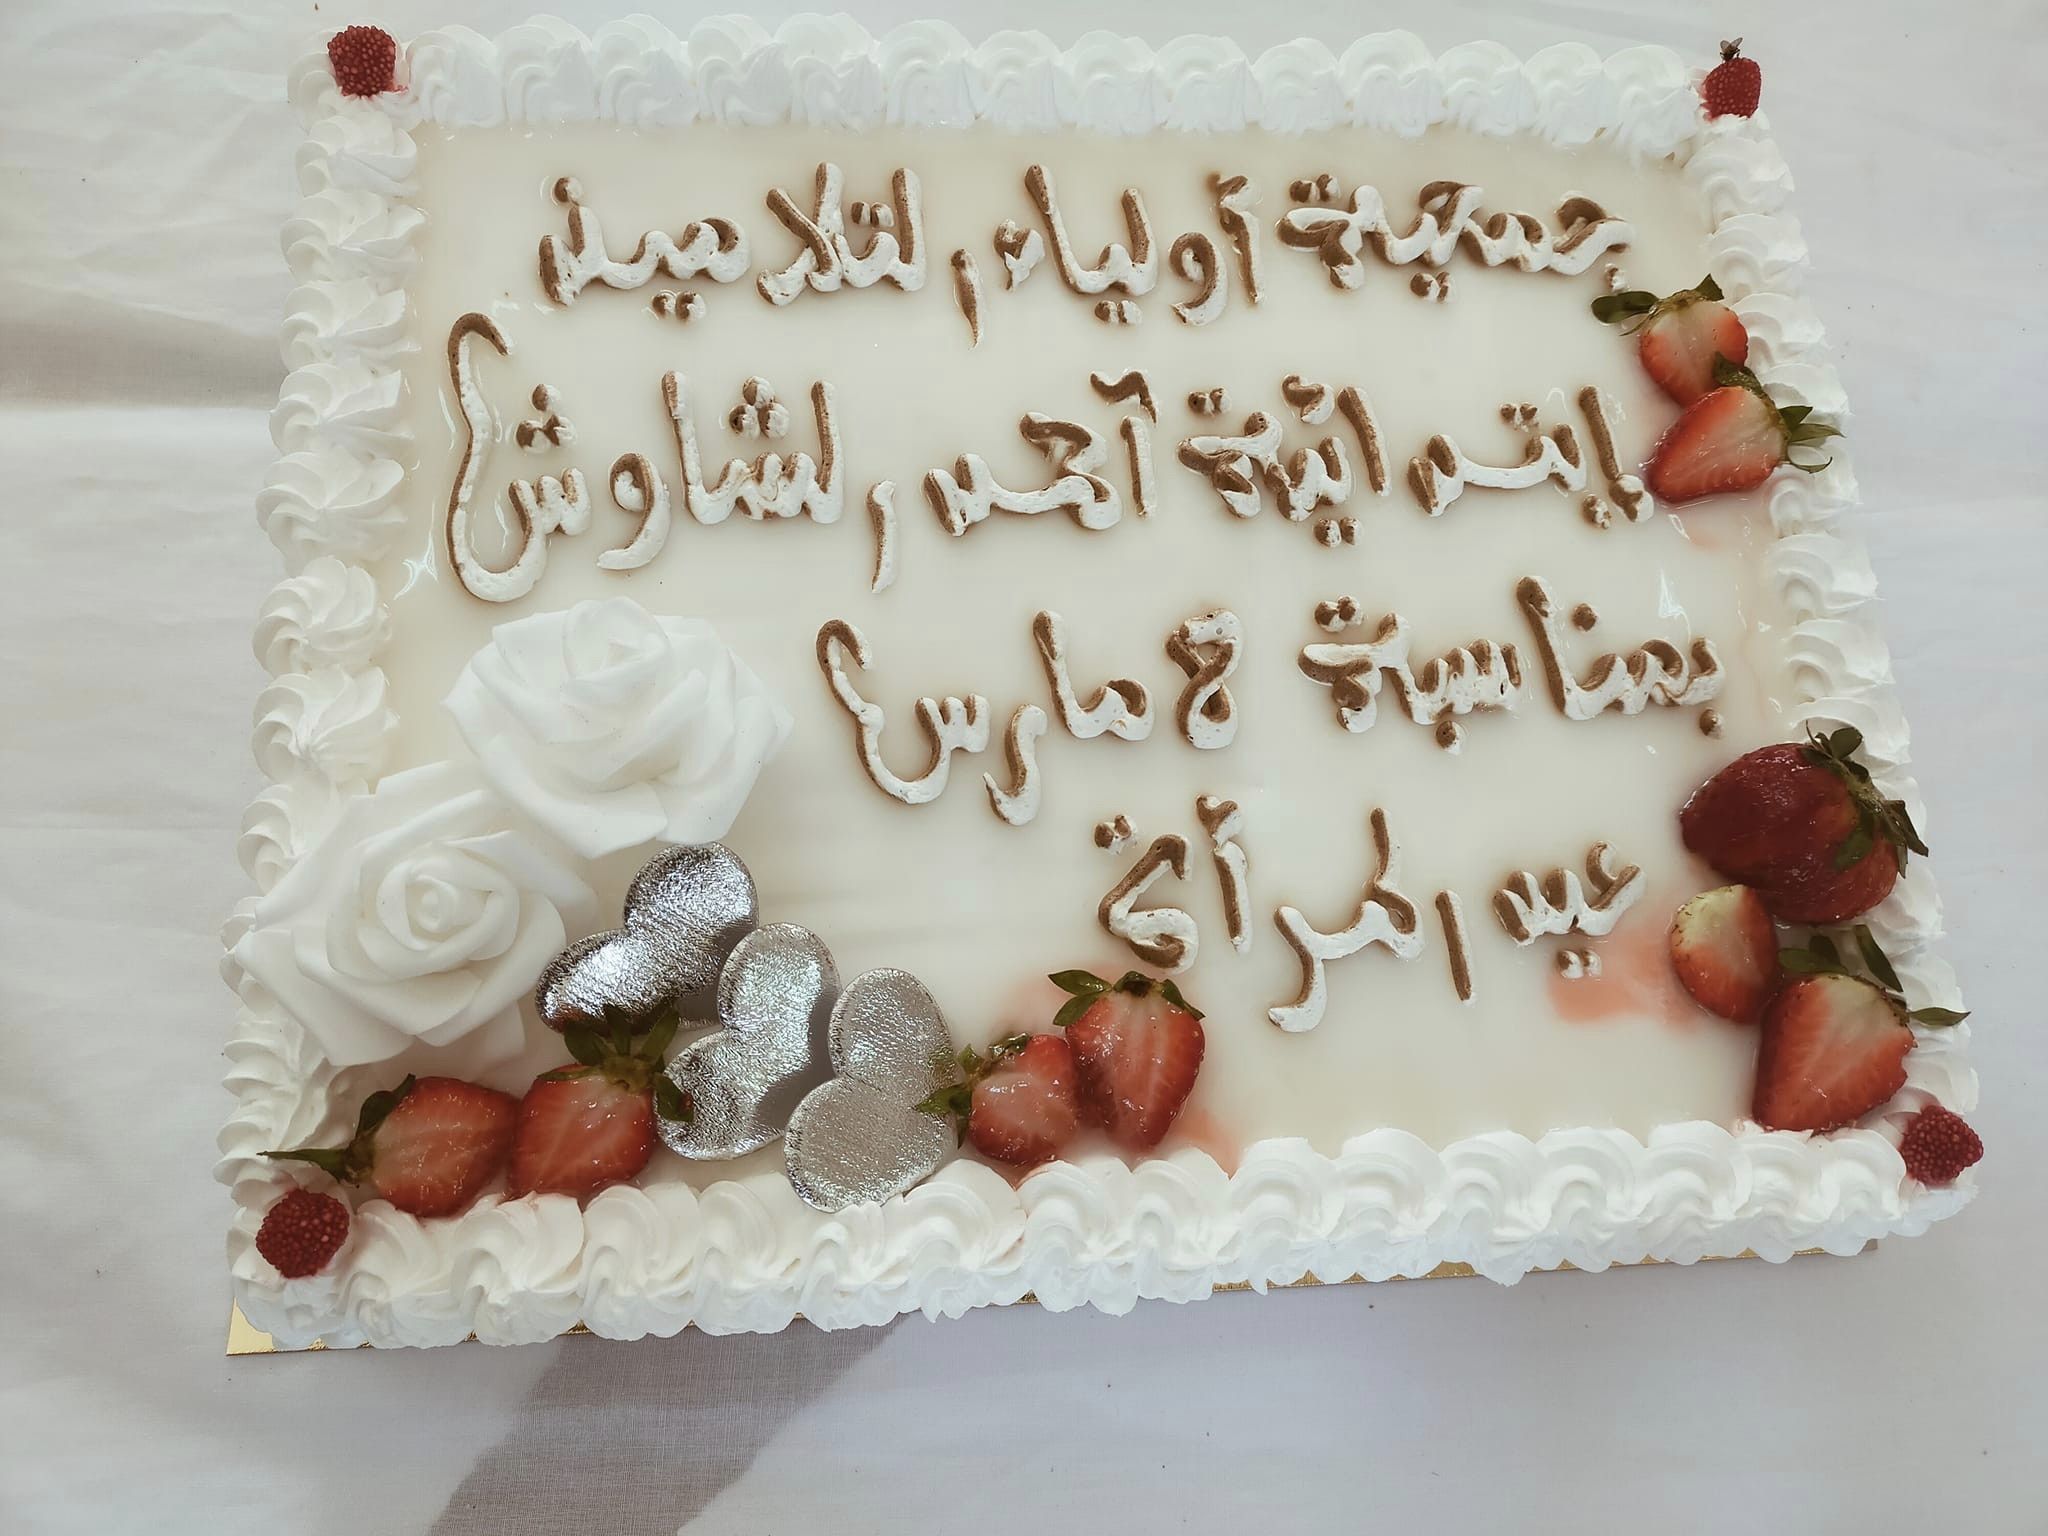 جمعية أولياء التلاميذ
إبتدائية آحمد الشاوش
بمناسبة 8 مارس
عيد المرأة